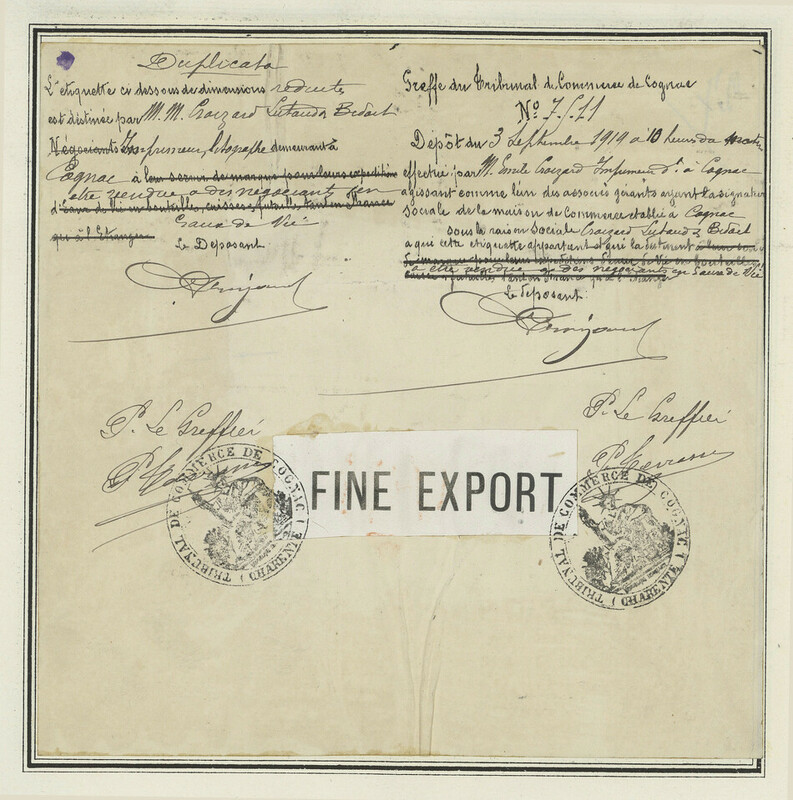 Duplicata
L'étiquette ci dessous de dimensions réduites
est destinée par M.M. Croizard Lutaud & Bidoit
Négociants Imprimeurs, litographe demeurant à
Cognac à leur servir de marque pour leurs expéditions
être vendue à des négociants en
d'Eaux de Vie en bouteille, caisses, futailles tant en France
eaux de Vie
qu'à l'Etranger
Le Déposant
P. Le Greffier
Greffe du Tribunal de Commerce de Cognac
Nº 7.571
Dépôt du 3 Septembre 1914 à 10 heures du matin
effectué par M. Emile Croizard Imprimeur dt. à Cognac
agissant comme l'un des associés gérants ayant la signature
sociale de la maison de Commerce établie à Cognac
sous la raison Sociale Croizard Lutaud & Bidoit
à qui cette étiquette appartient et qui la destinent
à être vendue à des négociants en Eaux de Vie
Le déposant
P. Le Greffier
FINE EXPORT
TRIBUNAL DE COMMERCE DE COGNAC (CHARENTE)
TRIBUNAL DE COMMERCE DE COGNAC (CHARENTE)